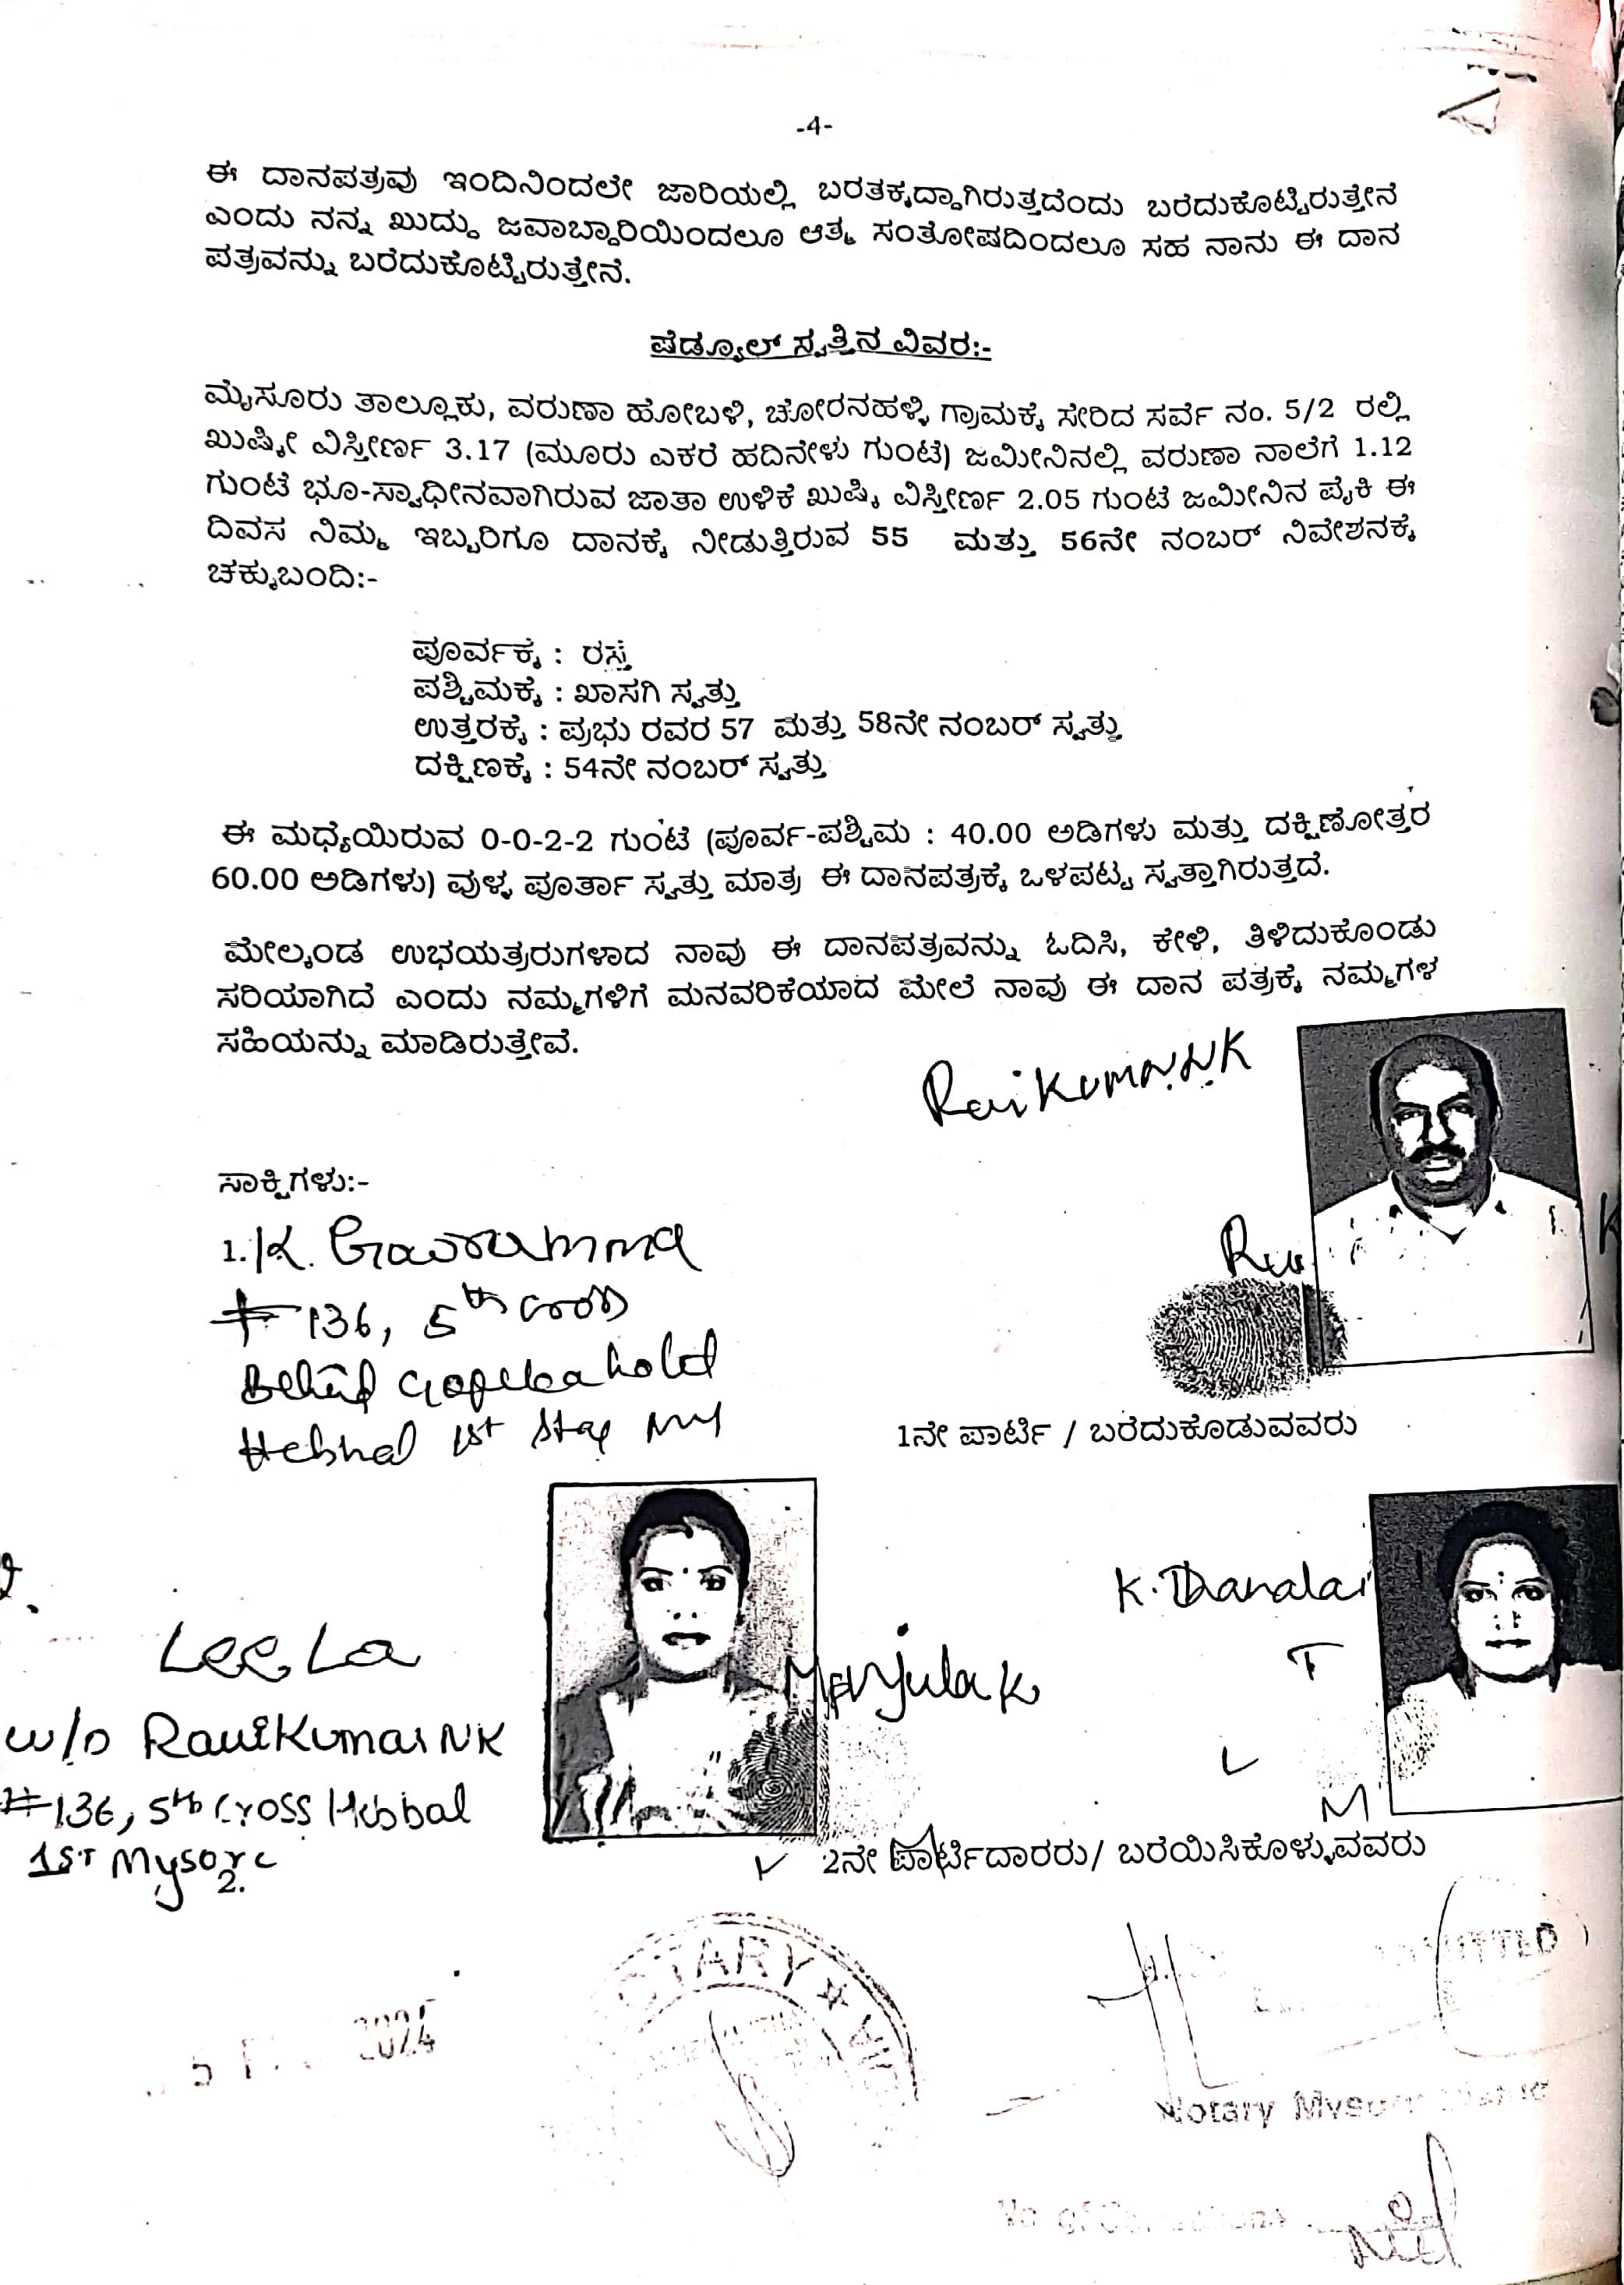 -4-
ಈ ದಾನಪತ್ರವು ಇಂದಿನಿಂದಲೇ ಜಾರಿಯಲ್ಲಿ ಬರತಕ್ಕದ್ದಾಗಿರುತ್ತದೆಂದು ಬರೆದುಕೊಟ್ಟಿರುತ್ತೇನೆ
ಎಂದು ನನ್ನ ಖುದ್ದು ಜವಾಬ್ದಾರಿಯಿಂದಲೂ ಆತ್ಮ ಸಂತೋಷದಿಂದಲೂ ಸಹ ನಾನು ಈ ದಾನ
ಪತ್ರವನ್ನು ಬರೆದುಕೊಟ್ಟಿರುತ್ತೇನೆ.
ಷೆಡ್ಯೂಲ್ ಸ್ವತ್ತಿನ ವಿವರ:-
ಮೈಸೂರು ತಾಲ್ಲೂಕು, ವರುಣಾ ಹೋಬಳಿ, ಚೋರನಹಳ್ಳಿ ಗ್ರಾಮಕ್ಕೆ ಸೇರಿದ ಸರ್ವೆ ನಂ. 5/2 ರಲ್ಲಿ
ಖುಷ್ಕೀ ವಿಸ್ತೀರ್ಣ 3.17 (ಮೂರು ಎಕರೆ ಹದಿನೇಳು ಗುಂಟೆ) ಜಮೀನಿನಲ್ಲಿ ವರುಣಾ ನಾಲೆಗೆ 1.12
ಗುಂಟೆ ಭೂ-ಸ್ವಾಧೀನವಾಗಿರುವ ಜಾತಾ ಉಳಿಕೆ ಖುಷ್ಕಿ ವಿಸ್ತೀರ್ಣ 2.05 ಗುಂಟೆ ಜಮೀನಿನ ಪೈಕಿ ಈ
ದಿವಸ ನಿಮ್ಮ ಇಬ್ಬರಿಗೂ ದಾನಕ್ಕೆ ನೀಡುತ್ತಿರುವ 55 ಮತ್ತು 56ನೇ ನಂಬರ್ ನಿವೇಶನಕ್ಕೆ
ಚಕ್ಕುಬಂದಿ:-
ಪೂರ್ವಕ್ಕೆ : ರಸ್ತೆ
ಪಶ್ಚಿಮಕ್ಕೆ : ಖಾಸಗಿ ಸ್ವತ್ತು
ಉತ್ತರಕ್ಕೆ : ಪ್ರಭು ರವರ 57 ಮತ್ತು 58ನೇ ನಂಬರ್ ಸ್ವತ್ತು
ದಕ್ಷಿಣಕ್ಕೆ : 54ನೇ ನಂಬರ್ ಸ್ವತ್ತು
ಈ ಮಧ್ಯೆಯಿರುವ 0-0-2-2 ಗುಂಟೆ (ಪೂರ್ವ-ಪಶ್ಚಿಮ : 40.00 ಅಡಿಗಳು ಮತ್ತು ದಕ್ಷಿಣೋತ್ತರ
60.00 ಅಡಿಗಳು) ವುಳ್ಳ ಪೂರ್ತಾ ಸ್ವತ್ತು ಮಾತ್ರ ಈ ದಾನಪತ್ರಕ್ಕೆ ಒಳಪಟ್ಟ ಸ್ವತ್ತಾಗಿರುತ್ತದೆ.
ಮೇಲ್ಕಂಡ ಉಭಯತ್ರರುಗಳಾದ ನಾವು ಈ ದಾನಪತ್ರವನ್ನು ಓದಿಸಿ, ಕೇಳಿ, ತಿಳಿದುಕೊಂಡು
ಸರಿಯಾಗಿದೆ ಎಂದು ನಮ್ಮಗಳಿಗೆ ಮನವರಿಕೆಯಾದ ಮೇಲೆ ನಾವು ಈ ದಾನ ಪತ್ರಕ್ಕೆ ನಮ್ಮಗಳ
ಸಹಿಯನ್ನು ಮಾಡಿರುತ್ತೇವೆ.
ಸಾಕ್ಷಿಗಳು:-
1. K. Gowramma
# 136, 5th cross
Hebbal 1st
1ನೇ ಪಾರ್ಟಿ / ಬರೆದುಕೊಡುವವರು
LeeLa
Manjula K
w/o RaviKumar NK
#136, 5th Cross Hebbal
1st Mysore
2.
L T M
2ನೇ ಪಾರ್ಟಿದಾರರು/ ಬರೆಯಿಸಿಕೊಳ್ಳುವವರು
2024
Notary